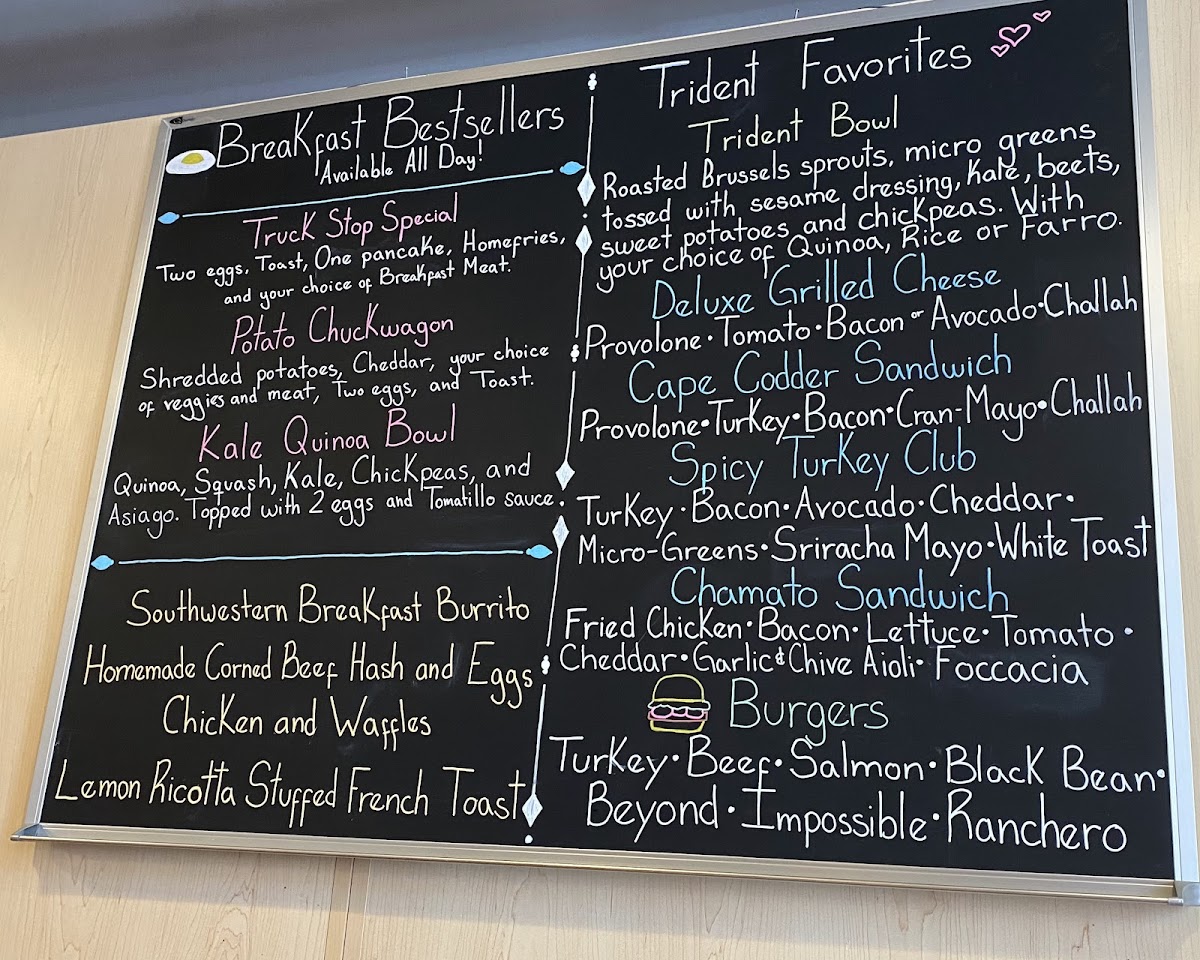 Breakfast Bestsellers
Available All Day!
Truck Stop Special
Two eggs, Toast, One pancake, Homefries,
and your choice of Breakfast Meat.
Potato Chuckwagon
Shredded potatoes, Cheddar, your choice
of veggies and meat, Two eggs, and Toast.
Kale Quinoa Bowl
Quinoa, Squash, Kale, Chickpeas, and
Asiago. Topped with 2 eggs and Tomatillo sauce.
Southwestern Breakfast Burrito
Homemade Corned Beef Hash and Eggs
Chicken and Waffles
Lemon Ricotta Stuffed French Toast
Trident Favorites
Trident Bowl
Roasted Brussels sprouts, micro greens
tossed with sesame dressing, Kale, beets,
sweet potatoes and chickpeas. With
your choice of Quinoa, Rice or Farro.
Deluxe Grilled Cheese
Provolone · Tomato · Bacon or Avocado · Challah
Cape Codder Sandwich
Provolone · Turkey · Bacon · Cran-Mayo · Challah
Spicy Turkey Club
Turkey · Bacon · Avocado · Cheddar ·
Micro-Greens · Sriracha Mayo · White Toast
Chamato Sandwich
Fried Chicken · Bacon · Lettuce · Tomato ·
Cheddar · Garlic & Chive Aioli · Foccacia
Burgers
Turkey · Beef · Salmon · Black Bean ·
Beyond · Impossible · Ranchero